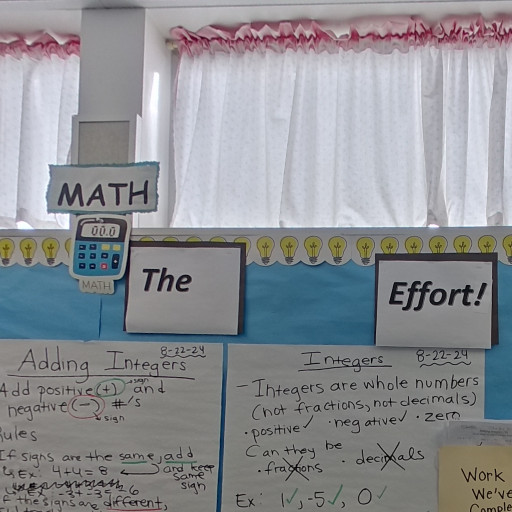 MATH
00.0
MATH
The
Effort!
Adding Integers
8-22-24
Add positive (+) and
sign
negative (-) #'s
sign
Rules
If signs are the same, add
and keep
same
sign
Ex: 4+4=8
-3+-3=-6
If the signs are different,
Integers
8-22-24
- Integers are whole numbers
(not fractions, not decimals)
· positive ✓ · negative ✓ · zero
Can they be
· fractions · decimals
Ex: 1 ✓, -5 ✓, 0 ✓
Work
We've
Comple